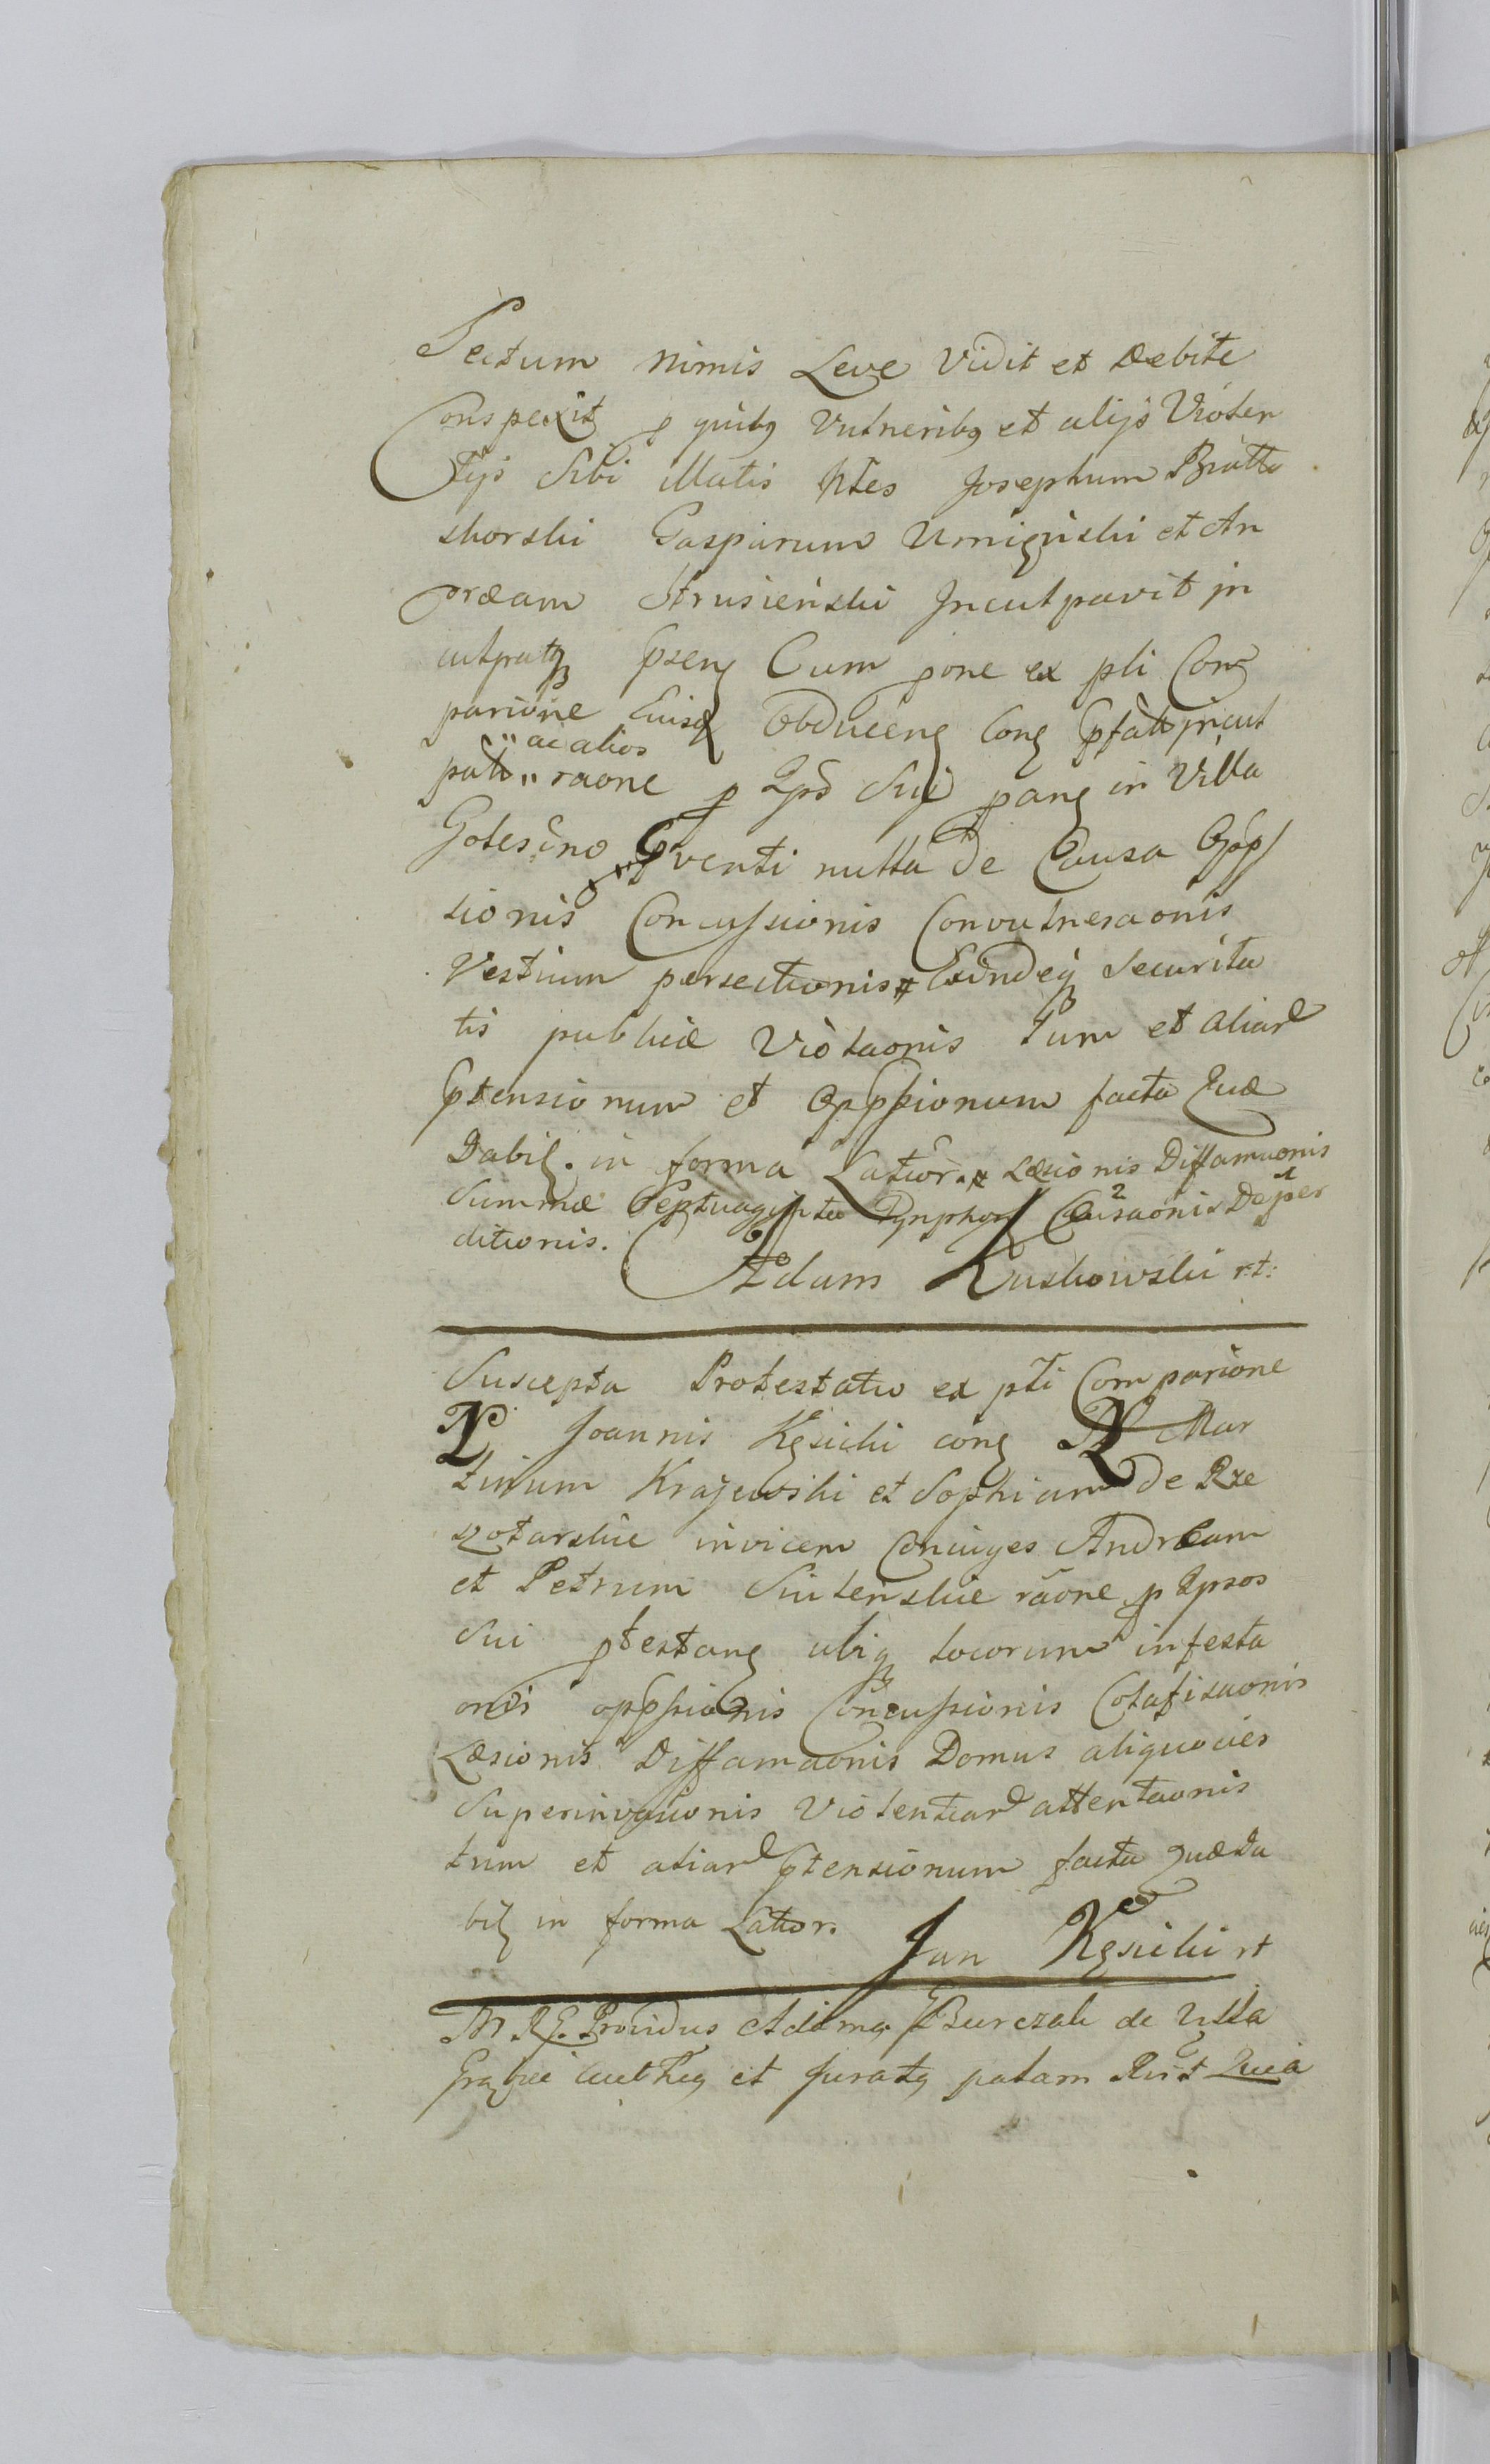 Sectum nimis Leve Vidit et Debite
Conspexit p quibq Vulneribq et alijs Violen
tijs Sibi illatis Ntes Josephum Biało
skorski Gasparum Umięński et An
dræam Strusieński Inculpavit in
culpatq Cum pone ex pti Com
parione Eiusq Obducenę Conę pfatt incul
ac alios
patt raone p Ipś Suj panę in Villa
Golesino venti nulla de Causa Opp
sionis Concussionis Convulneraonis
Vestium persectionis # Exindeq Securita
tis publicæ Violaonis tum et aliar
ptensionum et Oppssionum facta Quæ
Dabiƚ. in forma Latior. # Læsionis Diffamaonis
Summæ Septuaginta Tynphor 2 Causaonis 1 Deper
ditionis.
Adam Kuskowski rt:
Suscepta Protestatio ex pti Comparione
N Joannis Kęsicki conę N Mar
tinum Krajewski et Sophiam de Rze
szotarskie invicem Coniuges Andræam
et Petrum Sulenskie raone p Ipsos
Sui ptestanę ubiq locorum infesta
onis oppssionis Concussionis Colafisaonis
Læsionis Diffamaonis Domus aliquocies
Superinvasionis Violentiar attentaonis
tum et aliar ptensionum facta quæ Da
biƚ in forma Latior.
Jan Kęsicki rt
M R G. Providus Adamq Burczak de Villa
Grąbie authcq et Juratq palam Rt Quia